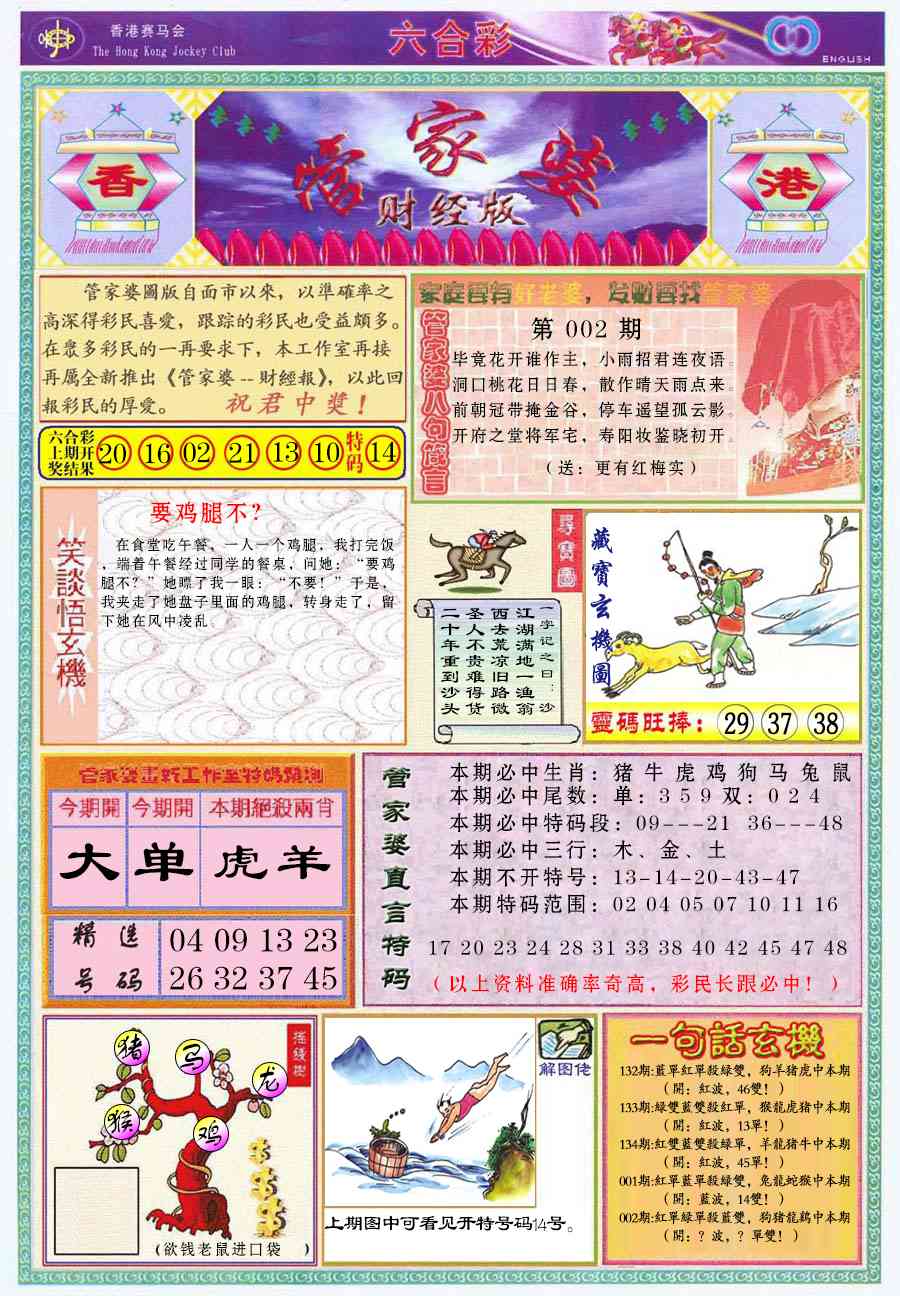 香港赛马会
The Hong Kong Jockey Club
六合彩
ENGLISH
香
管家婆
财经版
港
管家婆圖版自面市以來，以準確率之
高深得彩民喜愛，跟踪的彩民也受益頗多。
在眾多彩民的一再要求下，本工作室再接
再厲全新推出《管家婆--財經報》，以此回
報彩民的厚愛。 祝君中獎！
六合彩
上期开
奖结果
20 16 02 21 13 10 特码 14
家庭要有好老婆，发财要找管家婆
管家婆八句箴言
第 002 期
毕竟花开谁作主，小雨招君连夜语。
洞口桃花日日春，散作晴天雨点来。
前朝冠带掩金谷，停车遥望孤云影。
开府之堂将军宅，寿阳妆鉴晓初开。
（送：更有红梅实）
笑談悟玄機
要鸡腿不？
在食堂吃午餐，一人一个鸡腿，我打完饭
，端着午餐经过同学的餐桌，问她：“要鸡
腿不？”她瞟了我一眼：“不要！”于是，
我夹走了她盘子里面的鸡腿，转身走了，留
下她在风中凌乱。
尋寶圖
一字记之曰：沙
江湖满地一渔翁
西去荒凉旧路微
圣人不贵难得货
二十年重到沙头
藏寶玄機圖
靈碼旺捧： 29 37 38
管家婆畫新工作室特碼預測
今期開 今期開 本期絕殺兩肖
大 单 虎羊
精选
号码
04 09 13 23
26 32 37 45
管家婆直言特码
本期必中生肖：猪 牛 虎 鸡 狗 马 兔 鼠
本期必中尾数：单：3 5 9 双：0 2 4
本期必中特码段：09---21 36---48
本期必中三行：木、金、土
本期不开特号：13-14-20-43-47
本期特码范围：02 04 05 07 10 11 16
17 20 23 24 28 31 33 38 40 42 45 47 48
（以上资料准确率奇高，彩民长跟必中！）
摇錢樹
猪
马
龙
猴
鸡
（欲钱老鼠进口袋 ）
解图佬
上期图中可看见开特号码14号。
一句話玄機
132期:藍單紅單殺緑雙，狗羊猪虎中本期
（開：紅波，46雙！）
133期:緑雙藍雙殺紅單，猴龍虎猪中本期
（開：紅波，13單！）
134期:紅雙藍雙殺緑單，羊龍猪牛中本期
（開：紅波，45單！）
001期:紅單藍單殺緑雙，兔龍蛇猴中本期
（開：藍波，14雙！）
002期:紅單緑單殺藍雙，狗猪龍鷄中本期
（開：？波，？單雙！）